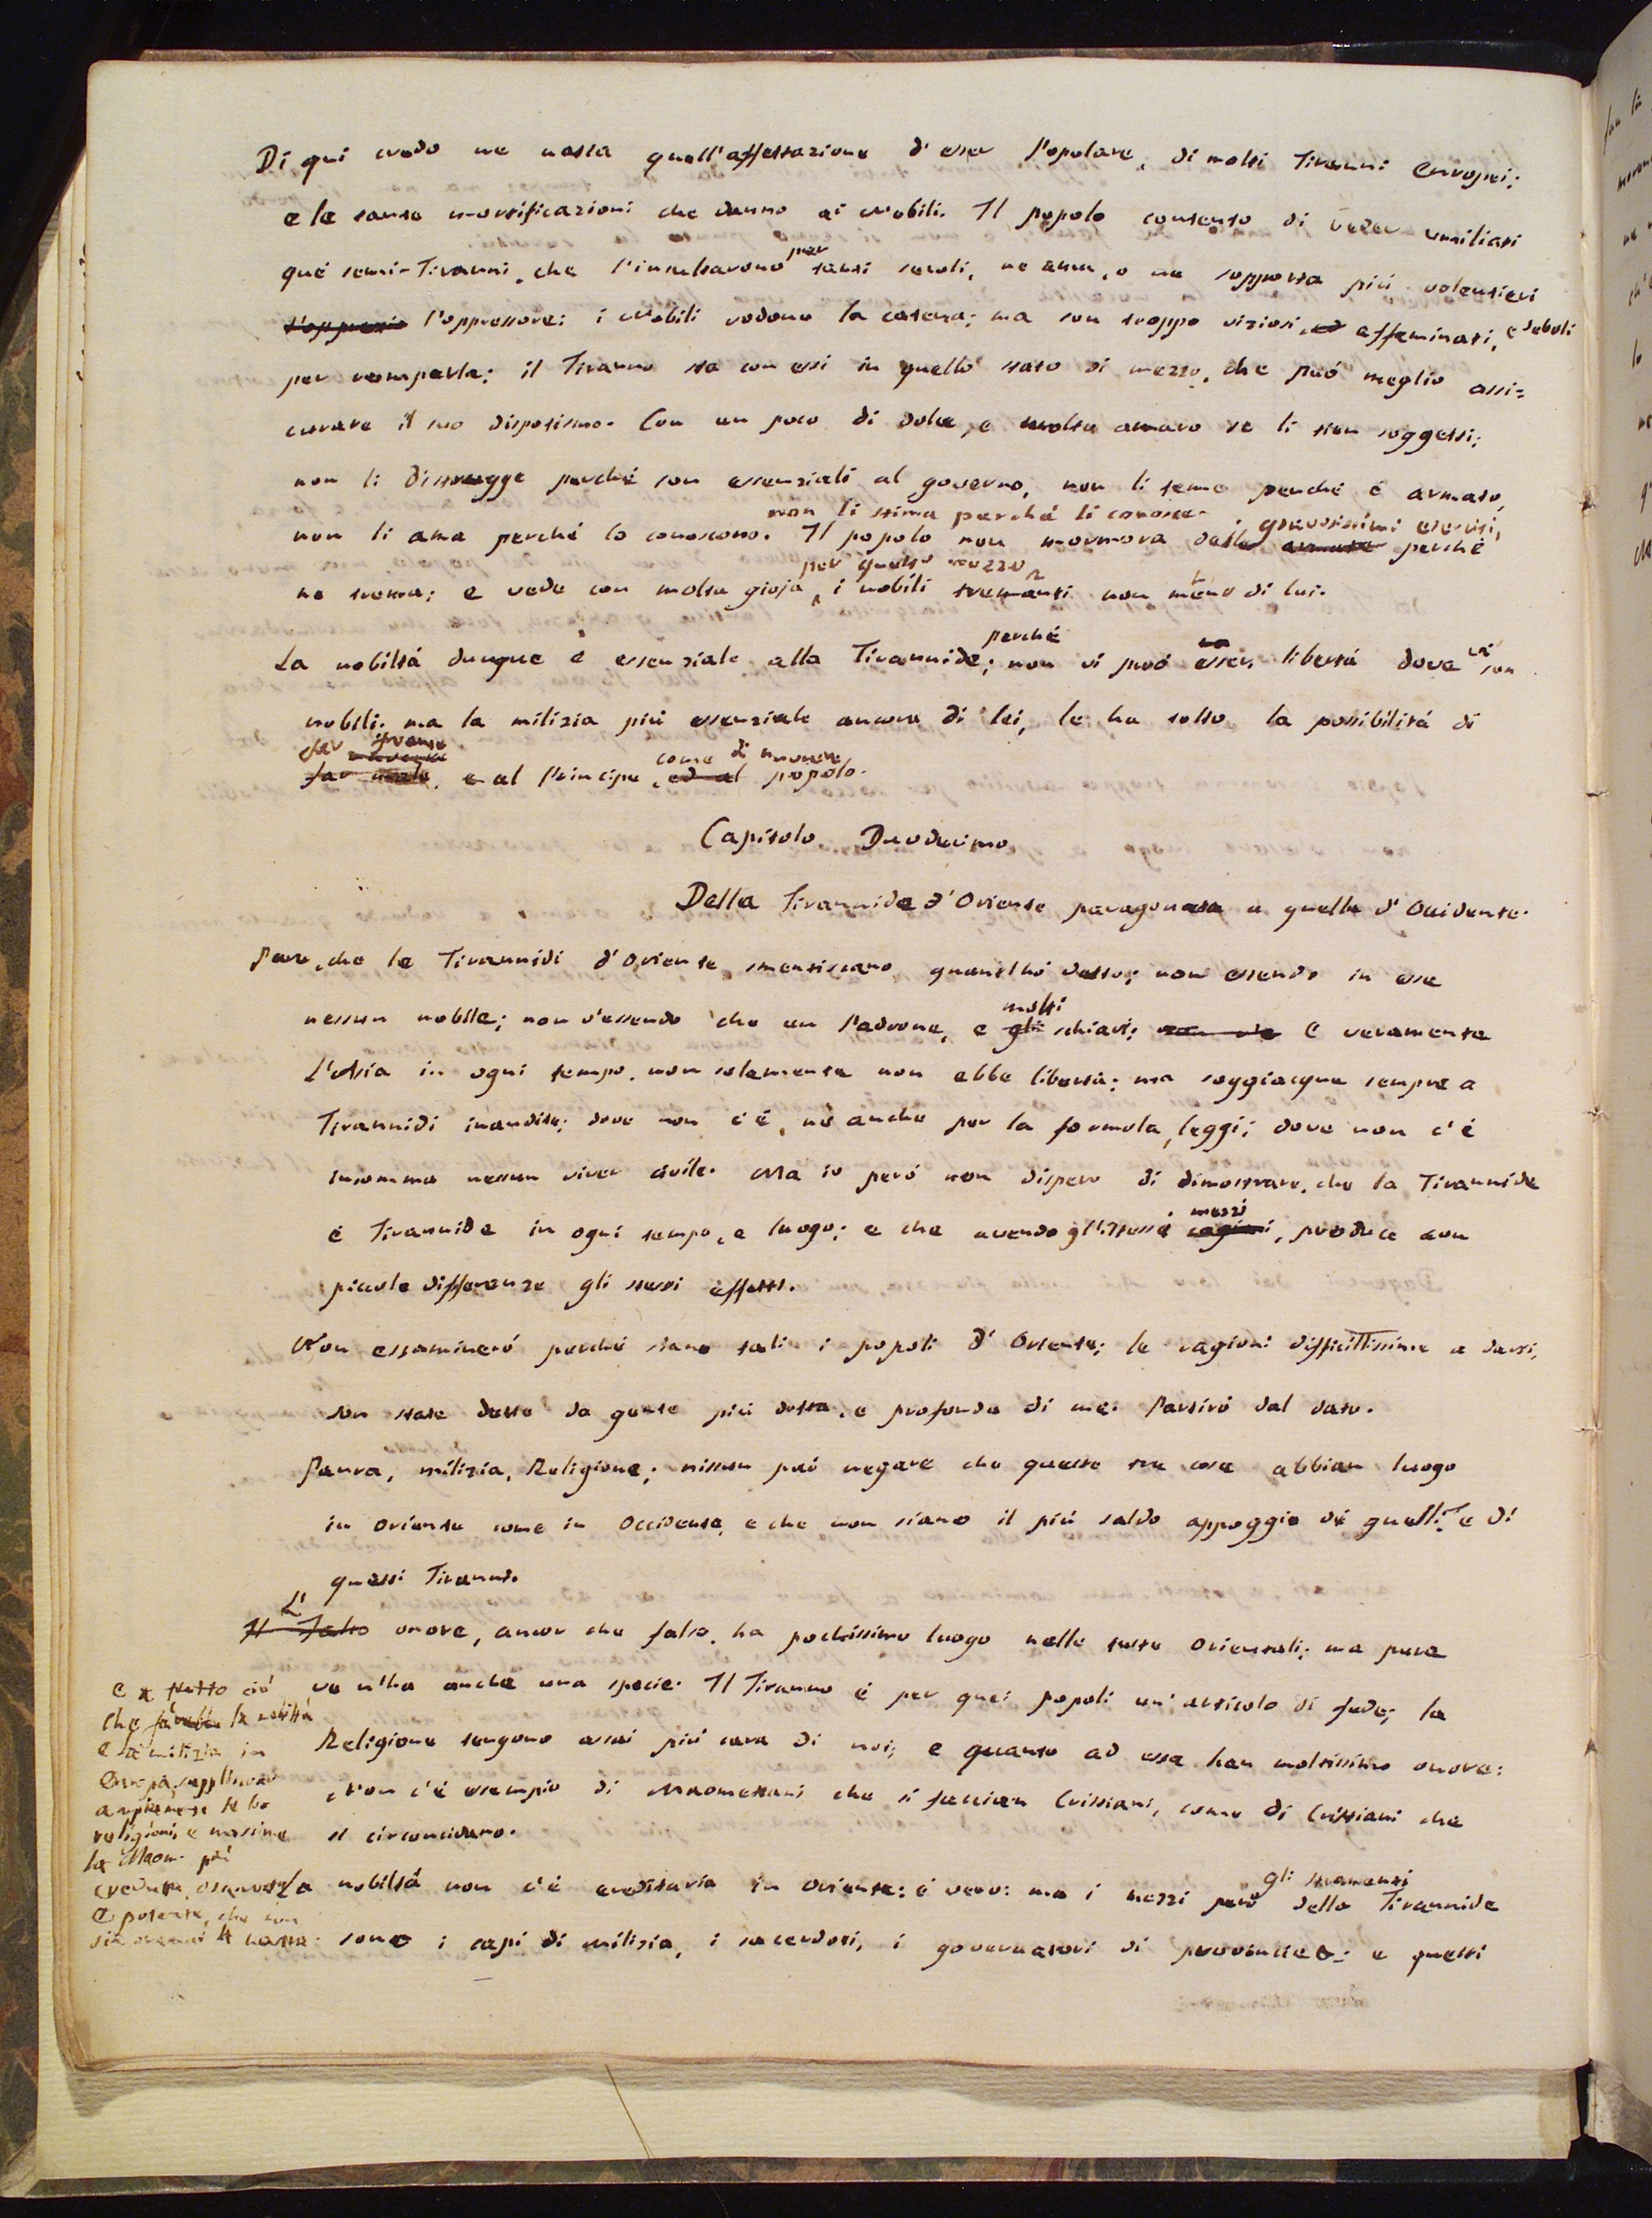 Di qui credo ne nasca quell'affettazione d'esser Popolare, di molti Tiranni Europei;
e le tante mortificazioni che danno ai Nobili. Il popolo contento di veder umiliati
què semi-Tiranni, che l'insultarono per tanti secoli, ne ama, o ne sopporta più volentieri
l'oppressore: i Nobili rodono la catena; ma son troppo viziosi, effeminati, e deboli
per romperla; il Tiranno sta con essi in quello stato di mezzo, che può meglio assi=
curare il suo dispotismo. Con un poco di dolce, e molto amaro se li tien soggetti;
non li distrugge perché son essenziali al governo, non li teme perché é armato,
non li stima perché li conosce. gravosissimi eserciti,
non li ama perché lo conoscono. Il popolo non mormora perché
per questo mezzo
ne trema; e vede con molta gioja, i nobili tremanti non meno di lui.
La nobiltà dunque é essenziale alla Tirannide; perché non vi può esser libertà dove vi son
nobili. ma la milizia più essenziale ancora di lei, le ha tolto la possibilità di
far fronte
e al Principe, come di nuocere popolo.
Capitolo Duodecimo
Della Tirannide d'Oriente paragonata a quella d'Occidente.
Pare, che le Tirannidi d'Oriente smentiscano quant'hó detto; non essendo in esse
nessun nobile; non v'essendo che un Padrone, e molti schiavi; E veramente
l'Asia in ogni tempo, non solamente non ebbe libertà; ma soggiacque sempre a
Tirannidi inaudite; dove non c'é, né anche per la formola, leggi; dove non c'é
insomma nessun viver civile. Ma io però non dispero di dimostrare, che la Tirannide
é Tirannide in ogni tempo, e luogo; e che avendo gl'istessi mezzi, produce con
piccole differenze gli stessi effetti.
Non essaminerò perché siano tali i popoli d'Oriente; le ragioni difficillissime a darsi,
son state dette da gente più dotta, e profonda di me. Partirò dal dato.
Paura, milizia, Religione; nissun può negare che queste tre cose abbian luogo
in Oriente come in Occidente, e che non siano il più saldo appoggio di quelli, e di
questi Tiranni.
L'
Il Falso onore, ancor che falso, ha pochissimo luogo nelle tutte Orientali; ma pure
ve n'ha anche una specie. Il Tiranno é per quei popoli un'articolo di fede; la
Religione tengono assai più cara di noi; e quanto ad essa han moltissimo onore:
Non c'é esempio di Maomettani che si faccian Cristiani, come di Cristiani che
si circoncidano.
La nobiltà non c'é ereditaria in Oriente: é vero: ma i mezzi però gli stromenti della Tirannide
sono i capi di milizia, i sacerdoti, i governatori di provincie: e questi
e a tutto ció
che la nobiltà
e la milizia in
Europa, suppliscono
ampiamente le lor
religioni, e massime
la Maom. più
creduta, osservata
e potente, che non
sia oramai la nostra.